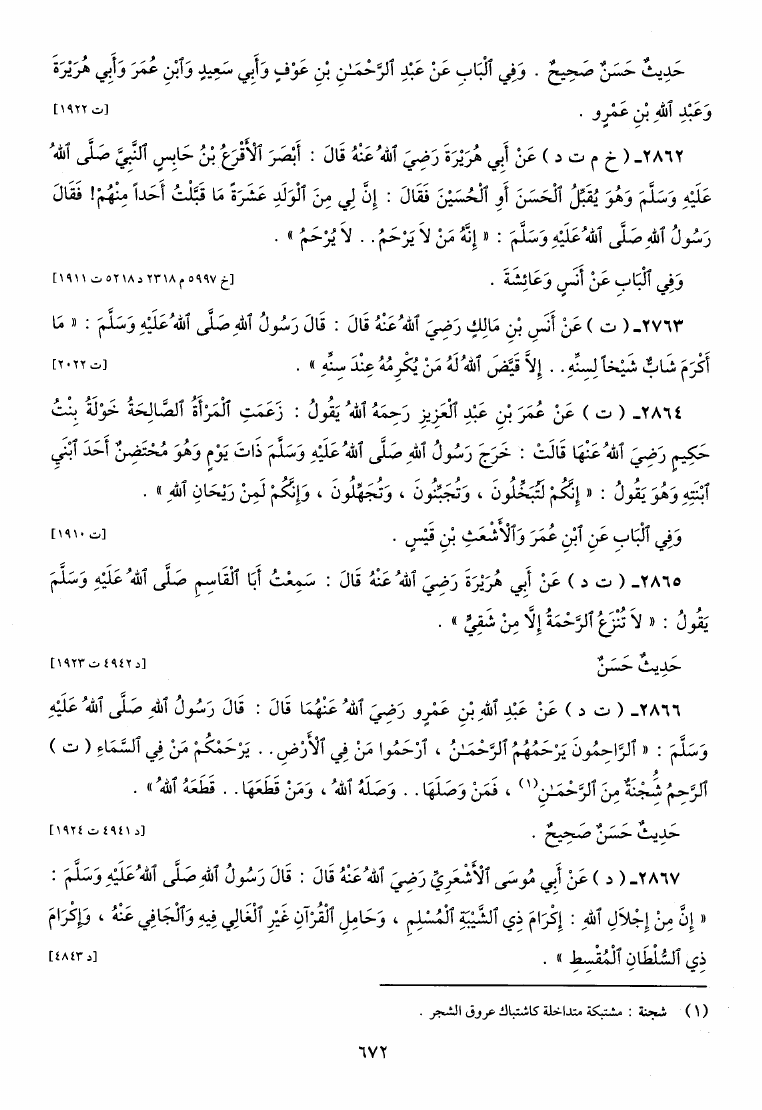 حَدِيثٌ حَسَنٌ صَحِيحٌ . وَفِي ٱلْبَابِ عَنْ عَبْدِ ٱلرَّحْمَـٰنِ بْنِ عَوْفٍ وَأَبِي سَعِيدٍ وَٱبْنِ عُمَرَ وَأَبِي هُرَيْرَةَ
وَعَبْدِ ٱللهِ بْنِ عَمْرٍو . [ت ١٩٢٢]
٢٨٦٢ـ ( خ م ت د ) عَنْ أَبِي هُرَيْرَةَ رَضِيَ ٱللهُ عَنْهُ قَالَ : أَبْصَرَ ٱلْأَقْرَعُ بْنُ حَابِسٍ ٱلنَّبِيَّ صَلَّى ٱللهُ
عَلَيْهِ وَسَلَّمَ وَهُوَ يُقَبِّلُ ٱلْحَسَنَ أَوِ ٱلْحُسَيْنَ فَقَالَ : إِنَّ لِي مِنَ ٱلْوَلَدِ عَشَرَةً مَا قَبَّلْتُ أَحَداً مِنْهُمْ! فَقَالَ
رَسُولُ ٱللهِ صَلَّى ٱللهُ عَلَيْهِ وَسَلَّمَ : « إِنَّهُ مَنْ لاَ يَرْحَمُ. . لاَ يُرْحَمُ » .
وَفِي ٱلْبَابِ عَنْ أَنَسٍ وَعَائِشَةَ . [خ ٥٩٩٧ م ٢٣١٨ د ٥٢١٨ ت ١٩١١]
٢٧٦٣ـ ( ت ) عَنْ أَنَسِ بْنِ مَالِكٍ رَضِيَ ٱللهُ عَنْهُ قَالَ : قَالَ رَسُولُ ٱللهِ صَلَّى ٱللهُ عَلَيْهِ وَسَلَّمَ : « مَا
أَكْرَمَ شَابٌّ شَيْخاً لِسِنِّهِ. . إِلاَّ قَيَّضَ ٱللهُ لَهُ مَنْ يُكْرِمُهُ عِنْدَ سِنِّهِ » . [ت ٢٠٢٢]
٢٨٦٤ـ ( ت ) عَنْ عُمَرَ بْنِ عَبْدِ ٱلْعَزِيزِ رَحِمَهُ ٱللهُ يَقُولُ : زَعَمَتِ ٱلْمَرْأَةُ ٱلصَّالِحَةُ خَوْلَةُ بِنْتُ
حَكِيمٍ رَضِيَ ٱللهُ عَنْهَا قَالَتْ : خَرَجَ رَسُولُ ٱللهِ صَلَّى ٱللهُ عَلَيْهِ وَسَلَّمَ ذَاتَ يَوْمٍ وَهُوَ مُحْتَضِنٌ أَحَدَ ٱبْنَيِ
ٱبْنَتِهِ وَهُوَ يَقُولُ : « إِنَّكُمْ لَتُبَخِّلُونَ ، وَتُجَبِّنُونَ ، وَتُجَهِّلُونَ ، وَإِنَّكُمْ لَمِنْ رَيْحَانِ ٱللهِ » .
وَفِي ٱلْبَابِ عَنِ ٱبْنِ عُمَرَ وَٱلْأَشْعَثِ بْنِ قَيْسٍ . [ت ١٩١٠]
٢٨٦٥ـ ( ت د ) عَنْ أَبِي هُرَيْرَةَ رَضِيَ ٱللهُ عَنْهُ قَالَ : سَمِعْتُ أَبَا ٱلْقَاسِمِ صَلَّى ٱللهُ عَلَيْهِ وَسَلَّمَ
يَقُولُ : « لاَ تُنْزَعُ ٱلرَّحْمَةُ إِلَّا مِنْ شَقِيٍّ » .
حَدِيثٌ حَسَنٌ [د ٤٩٤٢ ت ١٩٢٣]
٢٨٦٦ـ ( ت د ) عَنْ عَبْدِ ٱللهِ بْنِ عَمْرٍو رَضِيَ ٱللهُ عَنْهُمَا قَالَ : قَالَ رَسُولُ ٱللهِ صَلَّى ٱللهُ عَلَيْهِ
وَسَلَّمَ : « ٱلرَّاحِمُونَ يَرْحَمُهُمُ ٱلرَّحْمَـٰنُ ، ٱرْحَمُوا مَنْ فِي ٱلْأَرْضِ. . يَرْحَمْكُمْ مَنْ فِي السَّمَاءِ ( ت )
ٱلرَّحِمُ شُِجْنَةٌ مِنَ ٱلرَّحْمَـٰنِ(١) ، فَمَنْ وَصَلَهَا. . وَصَلَهُ ٱللهُ ، وَمَنْ قَطَعَهَا. . قَطَعَهُ ٱللهُ » .
حَدِيثٌ حَسَنٌ صَحِيحٌ . [د ٤٩٤١ ت ١٩٢٤]
٢٨٦٧ـ ( د ) عَنْ أَبِي مُوسَى ٱلْأَشْعَرِيِّ رَضِيَ ٱللهُ عَنْهُ قَالَ : قَالَ رَسُولُ ٱللهِ صَلَّى ٱللهُ عَلَيْهِ وَسَلَّمَ :
« إِنَّ مِنْ إِجْلاَلِ ٱللهِ : إِكْرَامَ ذِي ٱلشَّيْبَةِ ٱلْمُسْلِمِ ، وَحَامِلِ ٱلْقُرْآنِ غَيْرِ ٱلْغَالِي فِيهِ وَٱلْجَافِي عَنْهُ ، وَإِكْرَامَ
ذِي ٱلسُّلْطَانِ ٱلْمُقْسِطِ » . [د ٤٨٤٣]
(١) شجنة : مشتبكة متداخلة كاشتباك عروق الشجر .
٦٧٢